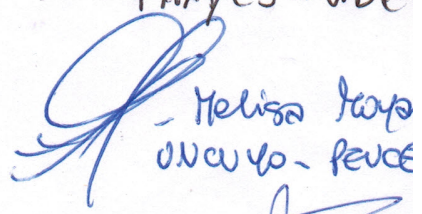 - Melisa Moya
UNCUYO - PEUCE